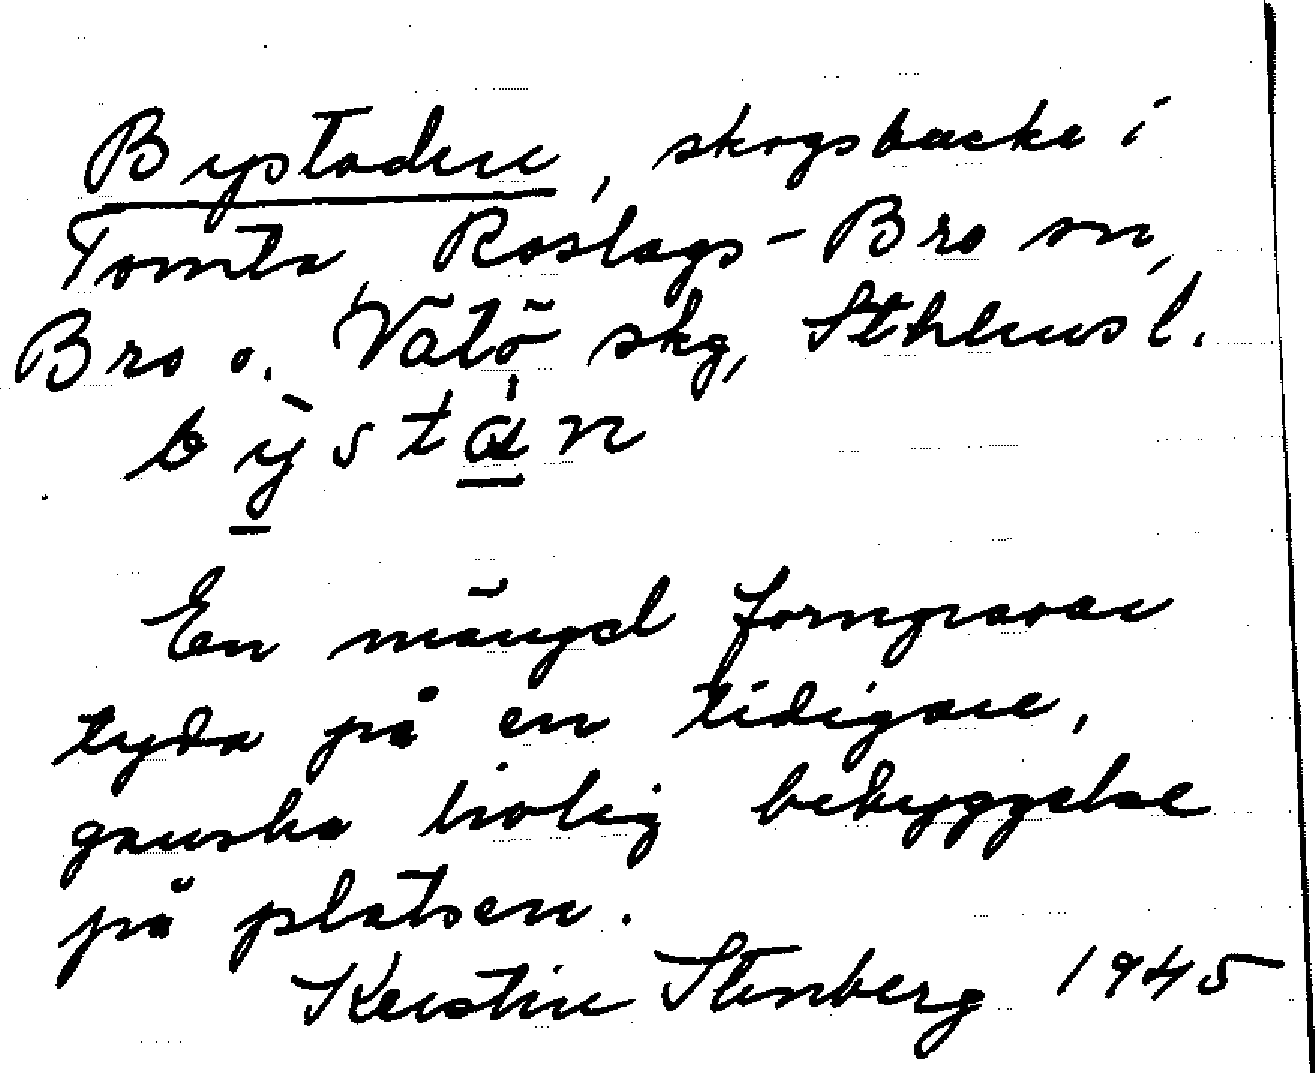 Bystaden, skogsbacke i
Tomta, Roslags-Bro sn,
Bro o. Vätö skg, Sthlms l.
bỳstán
En mängd forngravar
tyda på en tidigare,
ganska livlig bebyggelse
på platsen.
Kerstin Stenberg 1945